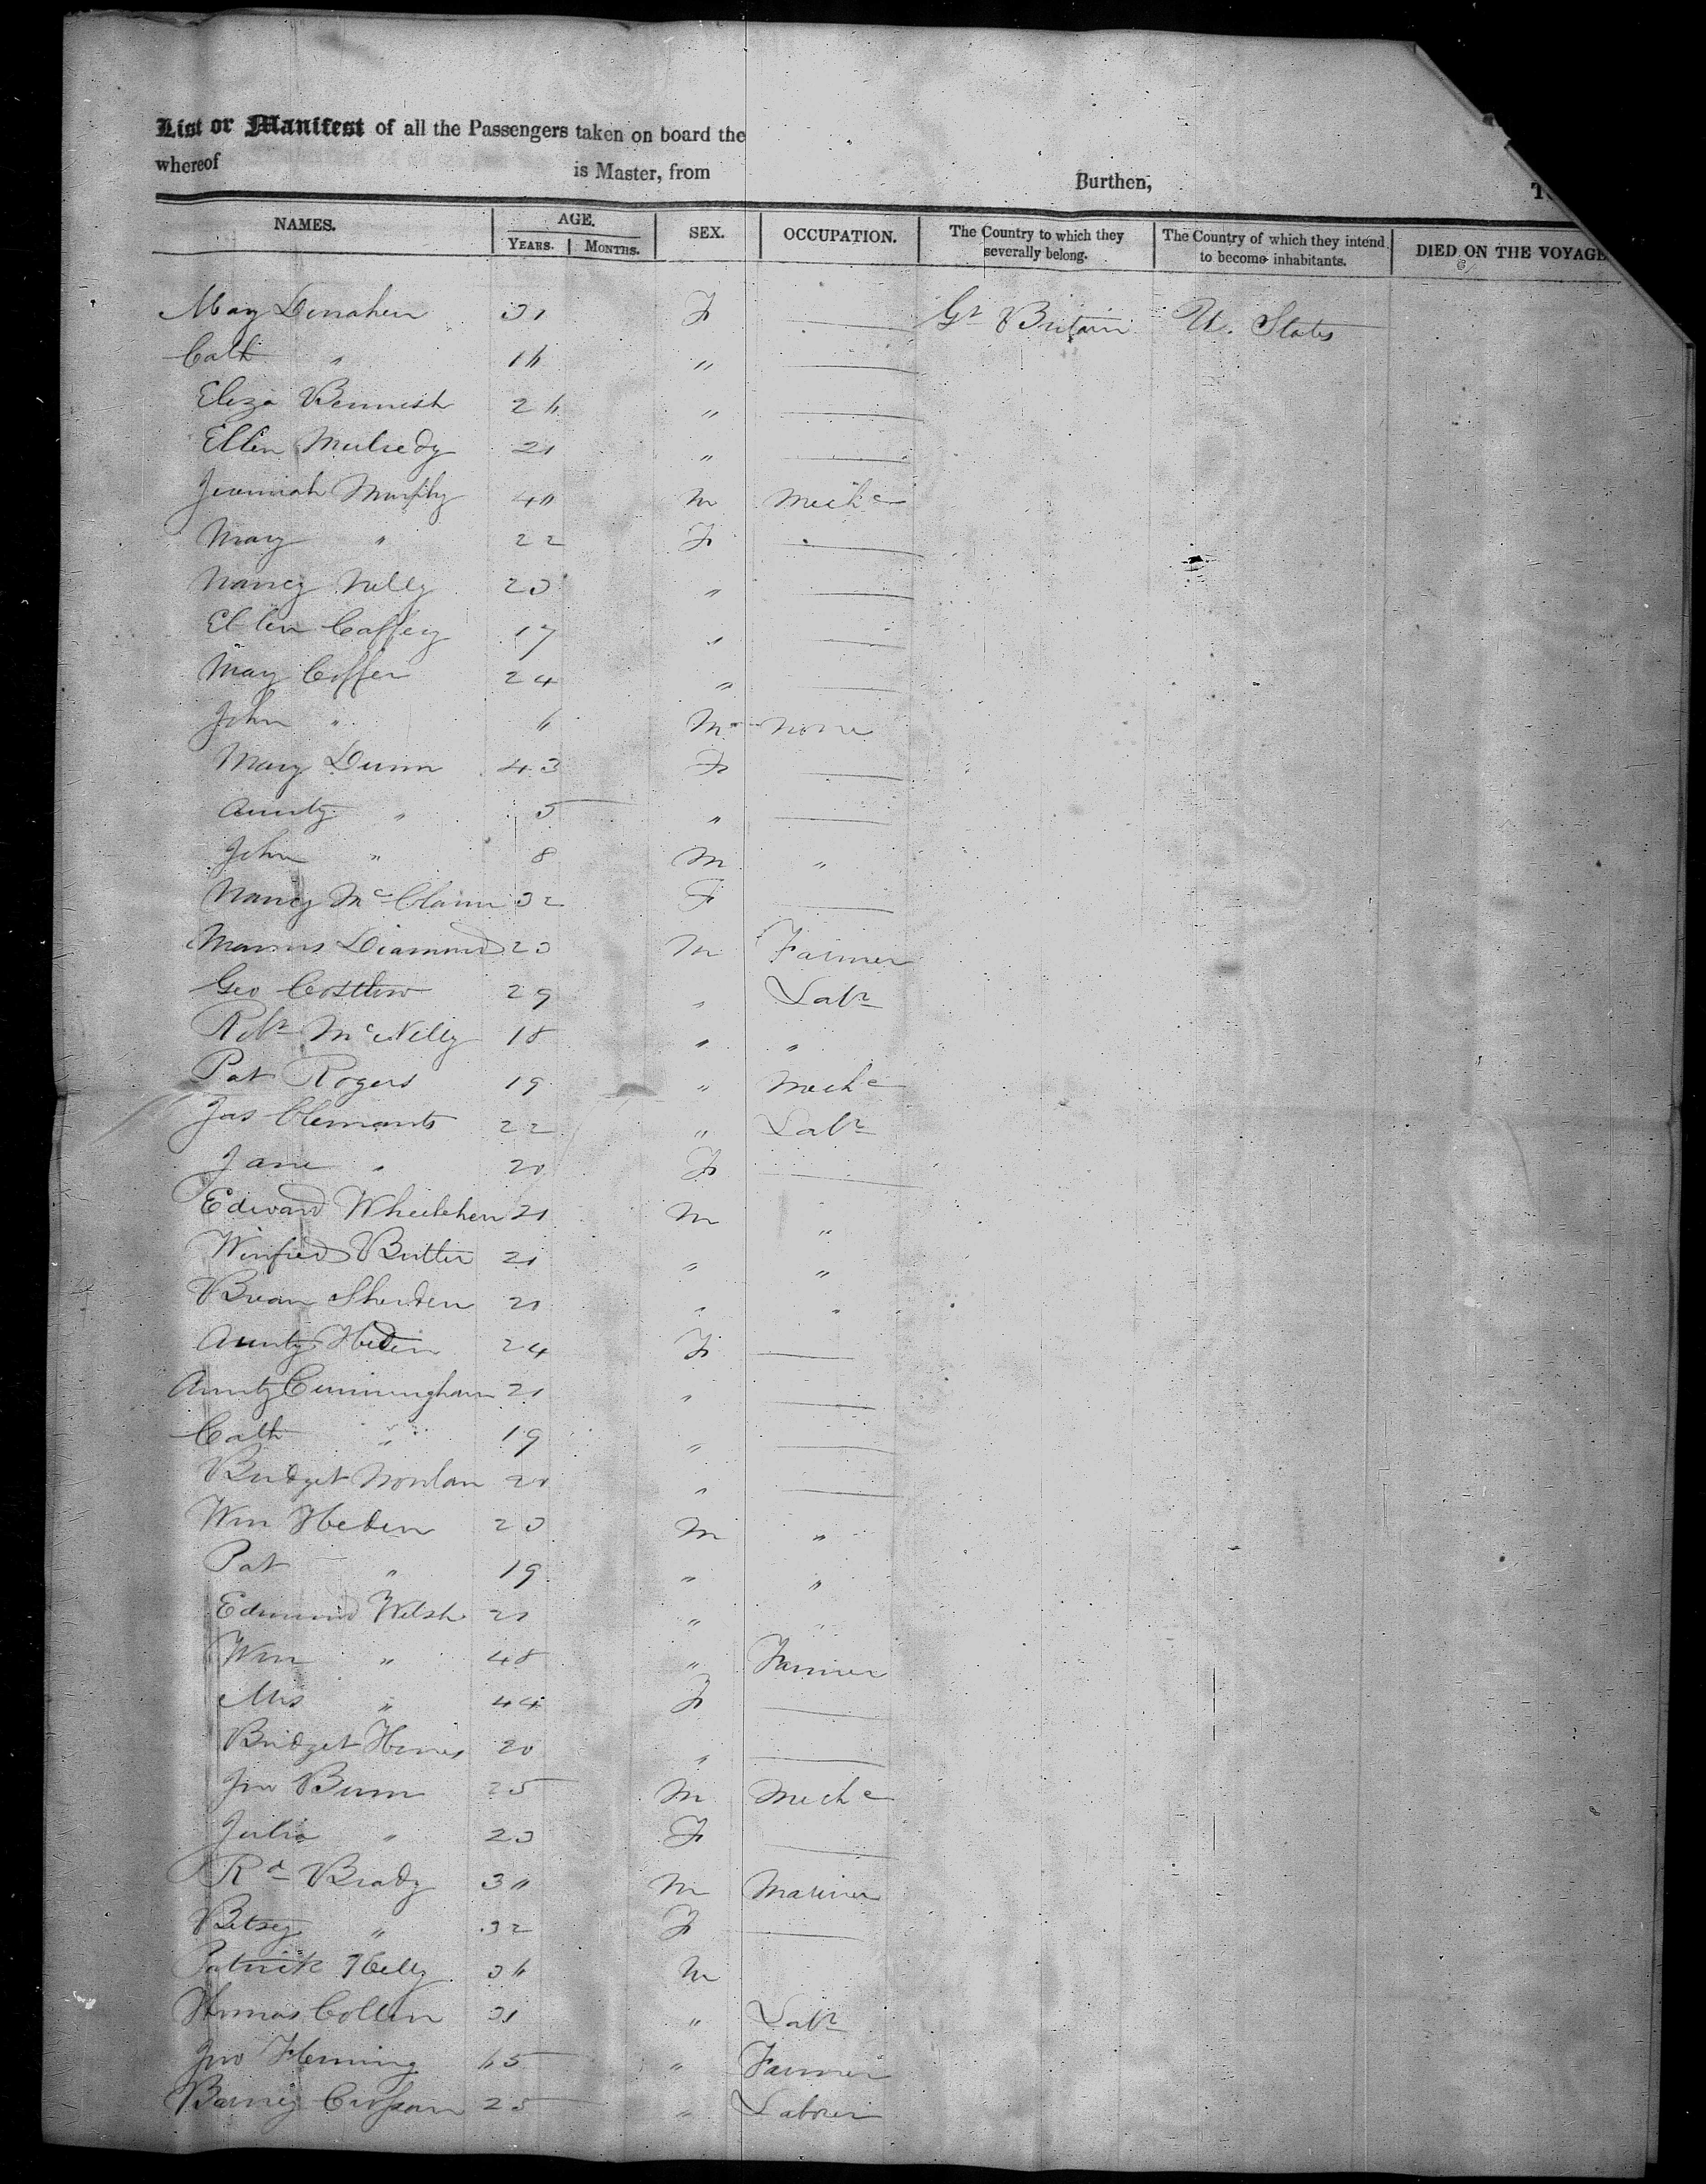 List or Manifest of all the Passengers taken on board the
whereof is Master, from Burthen,
NAMES. AGE. SEX. OCCUPATION. The Country to which they severally belong. The Country of which they intend to become inhabitants. DIED ON THE VOYAGE
YEARS. MONTHS.
May Donahen 31 F Gt Britain U. States
Cath " 16 "
Eliza Bennesh 26 "
Ellen Mulredy 21 "
Jeremiah Murphy 40 M Mechc
Mary " 22 F
Nancy Nelly 23 "
Ellen Caffey 17 "
May Coffer 24 "
John " 6 M none
Mary Dunn 43 F
Aunty " 5 "
John " 8 M "
Nancy McClann 32 F
Diamond 23 M Farmer
Geo Costlow 29 " Labr
Robt McNelly 18 " "
Pat Rogers 19 " Mechc
Jas Clemants 22 " Labr
Jane " 20 F
Edward 21 M "
Winfred Butler 21 " "
Sheriden 21 " "
Aunty Heden 24 F
Aunty Cunningham 21 "
Cath " 19 "
Bridget Nowlan 20 "
Wm Heden 23 M "
Pat " 19 " "
Edmund Welsh 21 " "
Wm " 48 " Farmer
Mrs " 44 F
Bridget Hines 20 "
Jno Burn 25 M Mechc
Julia " 23 F
Rd Brady 30 M Mariner
Betsey " 32 F
Patrick Kelly 36 M
Thomas Collen 31 " Labr
Jno Fleming 65 " Farmer
Barney Crossan 25 " Laborer